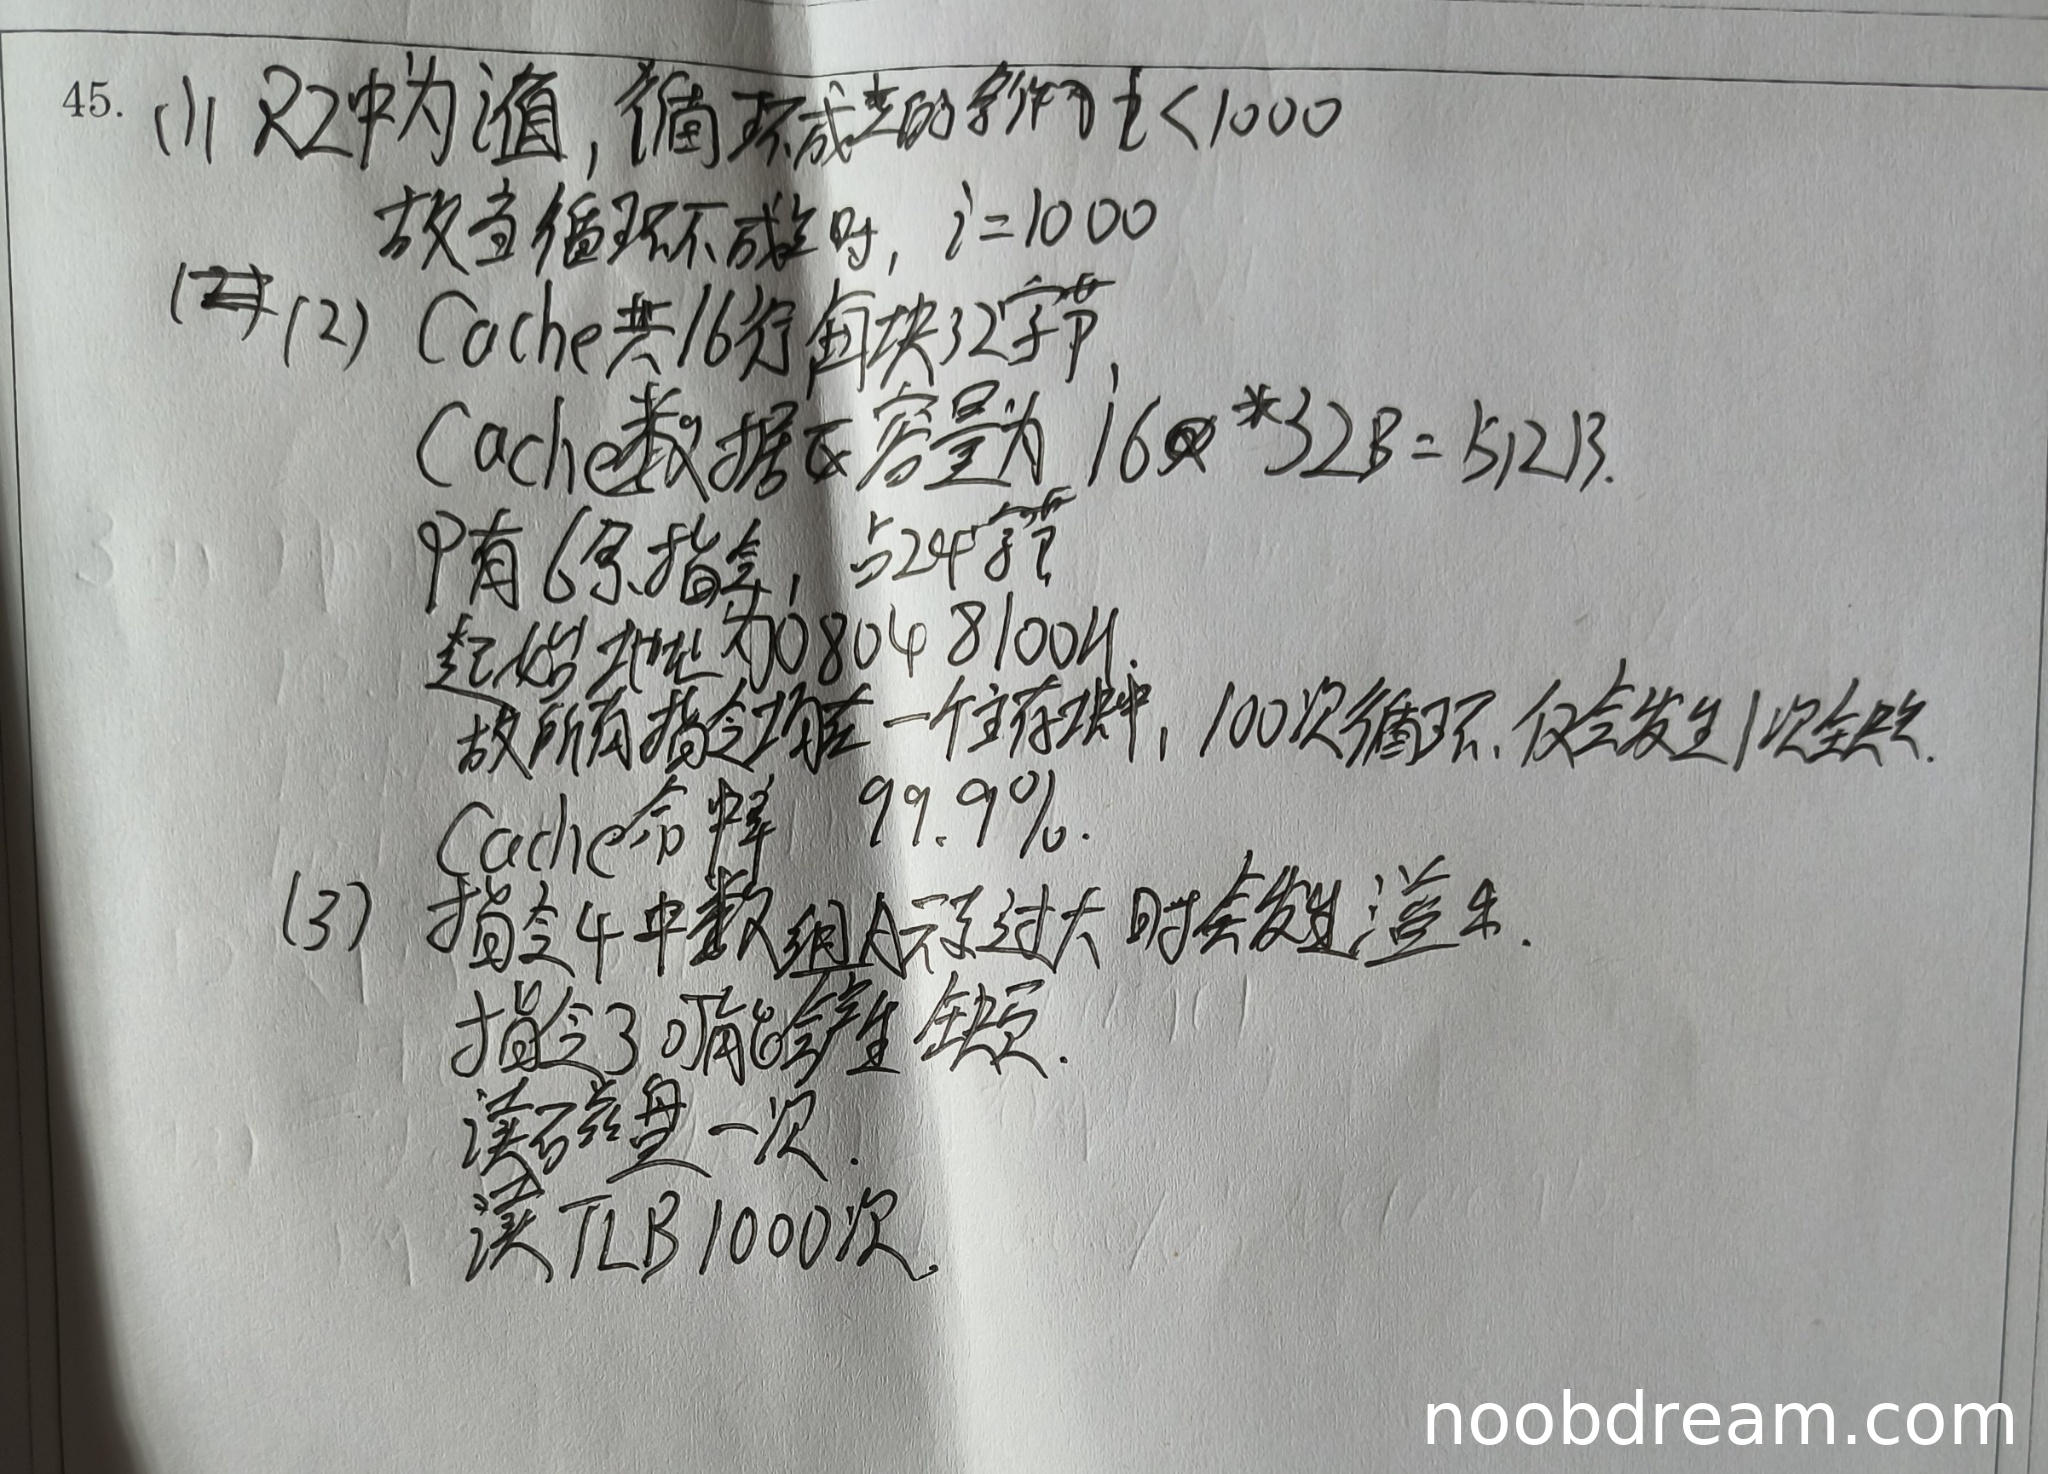 45. (1) R2中为i值,循环成立的条件为i<1000
故当循环不成立时, i=1000
(2) Cache共16行每块32字节,
Cache数据区容量为 16*32B=512B.
P有6条指令, 占24字节
起始地址为08048100H.
故所有指令均在一个主存块中, 100次循环、仅会发生1次缺失.
Cache命中率 99.9%.
(3) 指令4中数组A元素过大时会发生溢出.
指令3可能会产生缺页.
读磁盘一次.
读TLB1000次.
noobdream.com